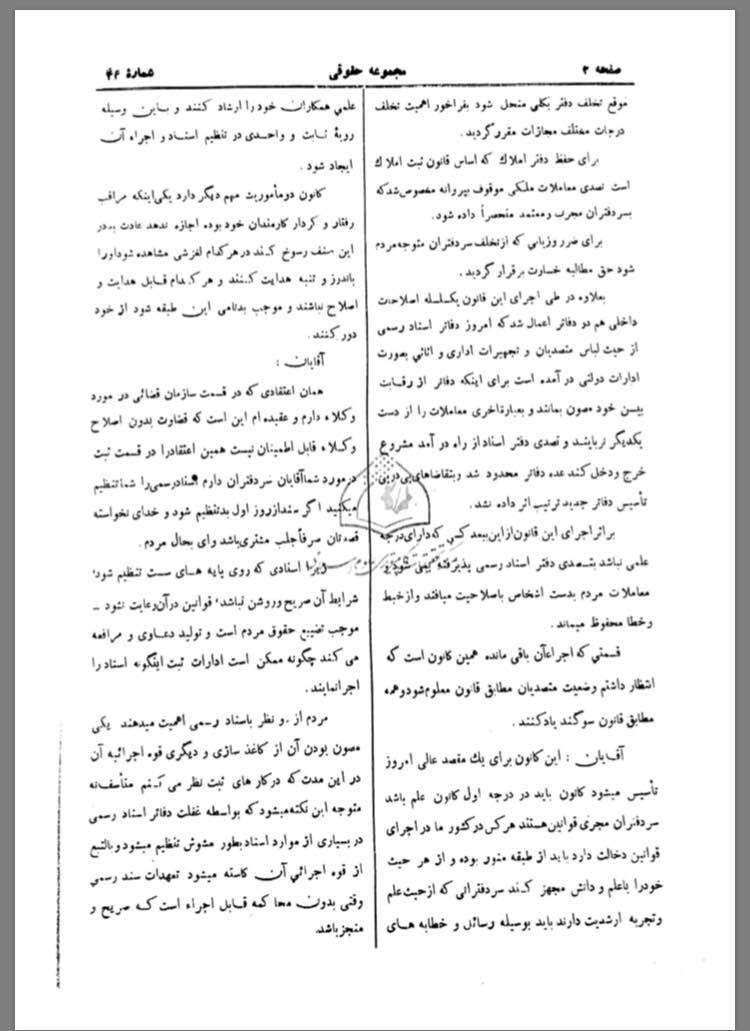 صفحه ۲
مجموعه حقوقی
شمارهٔ ۴۶
موقع تخلف دفتر بکلی منحل شود بفراخور اهمیت تخلف
درجات مختلف مجازات مقرر گردید.
برای حفظ دفتر املاک که اساس قانون ثبت املاک
است تصدی معاملات ملکی موقوف بپروانه مخصوص شد که
بسردفتران مجرب و معتمد منحصراً داده شود.
برای ضرر و زیانی که از تخلف سردفتران متوجه مردم
شود حق مطالبه خسارت برقرار گردید.
بعلاوه در طی اجرای این قانون یکسلسله اصلاحات
داخلی هم در دفاتر اعمال شد که امروز دفاتر اسناد رسمی
از حیث لباس متصدیان و تجهیزات اداری و اثاثی بصورت
ادارات دولتی در آمده است برای اینکه دفاتر از رقابت
بین خود مصون بمانند و بعبارة اخری معاملات را از دست
یکدیگر نربایند و تصدی دفتر اسناد از راه در آمد مشروع
خرج و دخل کند عده دفاتر محدود شد و بتقاضاهای پی در پی
تأسیس دفاتر جدید ترتیب اثر داده نشد.
بر اثر اجرای این قانون از این ببعد کسی که دارای درجه
علمی نباشد بتصدی دفتر اسناد رسمی پذیرفته نمی شود و
معاملات مردم بدست اشخاص باصلاحیت میافتد و از خبط
و خطا محفوظ میماند.
قسمتی که اجراء آن باقی مانده همین کانون است که
انتظار داشتم وضعیت متصدیان مطابق قانون معلوم شود و همه
مطابق قانون سوگند یاد کنند.
آقایان : این کانون برای یک مقصد عالی امروز
تأسیس میشود کانون باید در درجه اول کانون علم باشد
سردفتران مجری قوانین هستند هر کس در کشور ما در اجرای
قوانین دخالت دارد باید از طبقه منور بوده و از هر حیث
خود را با علم و دانش مجهز کند سردفترانی که از حیث علم
و تجربه ارشدیت دارند باید بوسیله رسائل و خطابه های
علمی همکاران خود را ارشاد کنند و باین وسیله
رویهٔ ثابت و واحدی در تنظیم اسناد و اجراء آن
ایجاد شود.
کانون دو مأموریت مهم دیگر دارد یکی اینکه مراقب
رفتار و کردار کارمندان خود بوده اجازه ندهد عادت بد در
این صنف رسوخ کند در هر کدام لغزشی مشاهده شود او را
باندرز و تنبه هدایت کنند و هر کدام قابل هدایت و
اصلاح نباشند و موجب بدنامی این طبقه شود از خود
دور کنند.
آقایان :
همان اعتقادی که در قسمت سازمان قضائی در مورد
وکلاء دارم و عقیده ام این است که قضاوت بدون اصلاح
وکلاء قابل اطمینان نیست همین اعتقاد را در قسمت ثبت
در مورد شما آقایان سردفتران دارم اسناد رسمی را شما تنظیم
میکنید اگر سند از روز اول بد تنظیم شود و خدای نخواسته
قصدتان صرفاً جلب مشتری باشد وای بحال مردم.
زیرا اسنادی که روی پایه های سست تنظیم شود،
شرایط آن صریح و روشن نباشد، قوانین در آن رعایت نشود -
موجب تضییع حقوق مردم است و تولید دعاوی و مرافعه
می کند چگونه ممکن است ادارات ثبت اینگونه اسناد را
اجرا نمایند.
مردم از دو نظر باسناد رسمی اهمیت میدهند یکی
مصون بودن آن از کاغذ سازی و دیگری قوه اجرائیه آن
در این مدت که در کار های ثبت نظر می کنم متأسفانه
متوجه این نکته میشود که بواسطه غفلت دفاتر اسناد رسمی
در بسیاری از موارد اسناد بطور مشوش تنظیم میشود و بالتبع
از قوه اجرائی آن کاسته میشود تعهدات سند رسمی
وقتی بدون محاکمه قابل اجراء است که صریح و
منجز باشد.